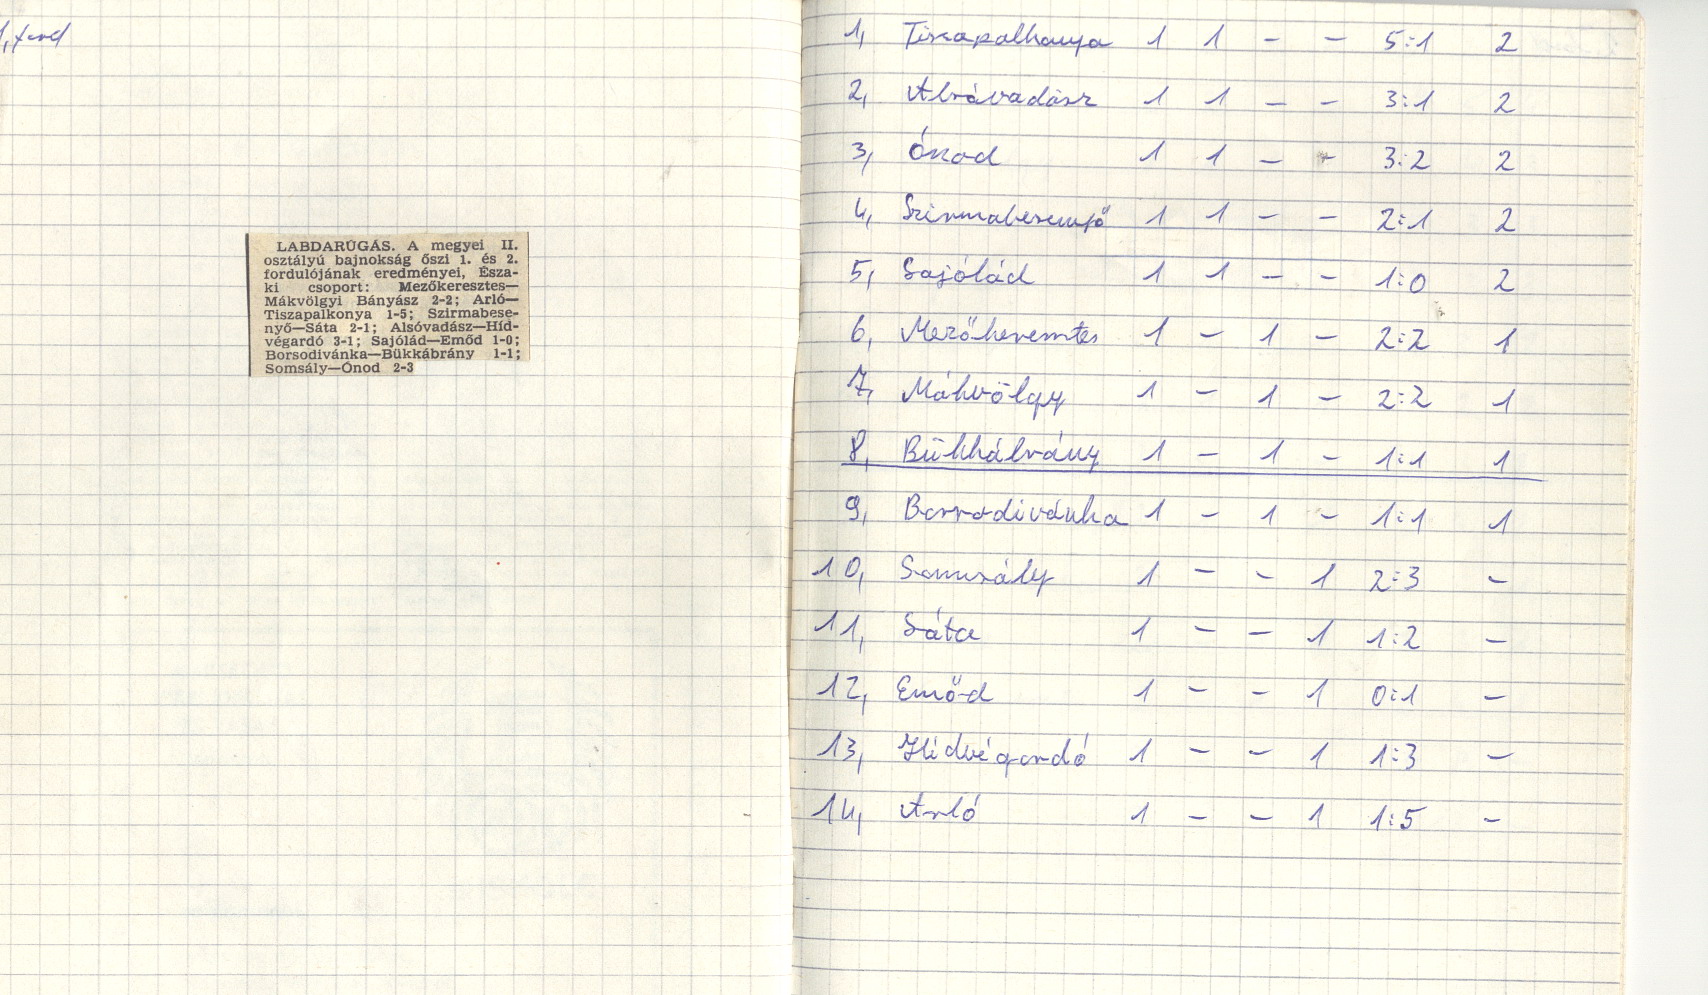 1, ford
LABDARÚGÁS. A megyei II.
osztályú bajnokság őszi 1. és 2.
fordulójának eredményei, Észa-
ki csoport: Mezőkeresztes—
Mákvölgyi Bányász 2-2; Arló—
Tiszapalkonya 1-5; Szirmabese-
nyő—Sáta 2-1; Alsóvadász—Híd-
végardó 3-1; Sajólád—Emőd 1-0;
Borsodivánka—Bükkábrány 1-1;
Somsály—Ónod 2-3
1, Tiszapalkonya 1 1 – – 5:1 2
2, Alsóvadász 1 1 – – 3:1 2
3, Ónod 1 1 – – 3:2 2
4, Szirmabesenyő 1 1 – – 2:1 2
5, Sajólád 1 1 – – 1:0 2
6, Mezőkeresztes 1 – 1 – 2:2 1
7, Mákvölgy 1 – 1 – 2:2 1
8, Bükkábrány 1 – 1 – 1:1 1
9, Borsodivánka 1 – 1 – 1:1 1
10, Somsály 1 – – 1 2:3 –
11, Sáta 1 – – 1 1:2 –
12, Emőd 1 – – 1 0:1 –
13, Hidvégardó 1 – – 1 1:3 –
14, Arló 1 – – 1 1:5 –